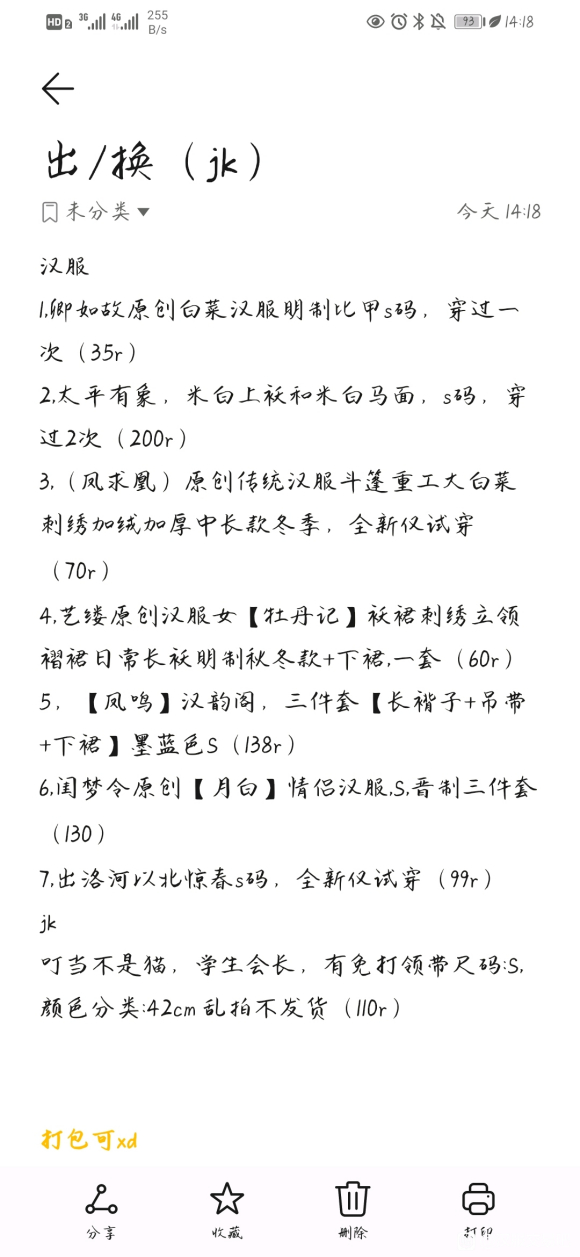 HD 2 3G 4G 255 B/s 93 14:18
出/换（jk）
未分类 今天 14:18
汉服
1,卿如故原创白菜汉服明制比甲s码，穿过一
次（35r）
2,太平有象，米白上袄和米白马面，s码，穿
过2次（200r）
3,（凤求凰）原创传统汉服斗篷重工大白菜
刺绣加绒加厚中长款冬季，全新仅试穿
（70r）
4,艺缕原创汉服女【牡丹记】袄裙刺绣立领
褶裙日常长袄明制秋冬款+下裙,一套（60r）
5，【凤鸣】汉韵阁，三件套【长褙子+吊带
+下裙】墨蓝色S（138r）
6,闺梦令原创【月白】情侣汉服,S,晋制三件套
（130）
7,出洛河以北惊春s码，全新仅试穿（99r）
jk
叮当不是猫，学生会长，有免打领带尺码:S,
颜色分类:42cm 乱拍不发货（110r）
打包可xd
分享 收藏 删除 打印